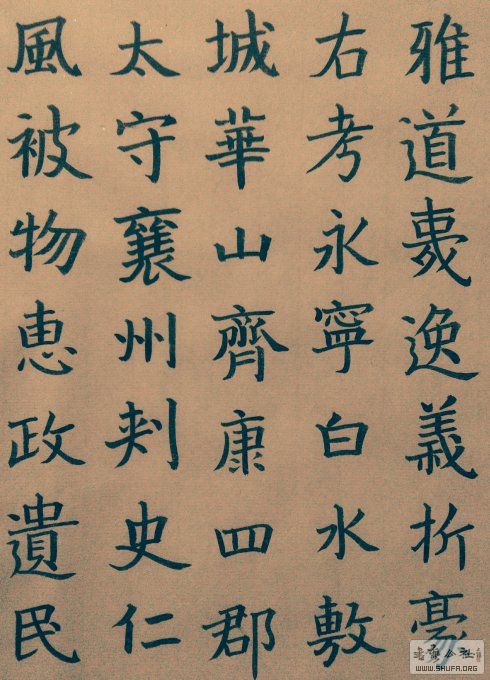 雅道敻逸義折豪
右考永寧白水敷
城華山齊康四郡
太守襄州刾史仁
風被物恵政遺民
WWW.SHUFA.ORG